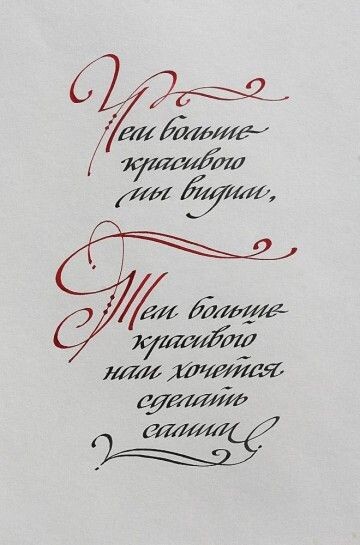 Чем больше
красивого
мы видим,
Тем больше
красивого
нам хочется
сделать
самим